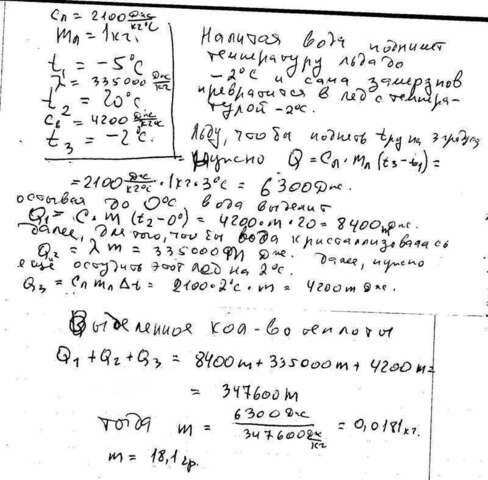 Cл = 2100 Дж/кг°С
mл = 1кг.
t₁ = -5°C
λ = 335000 Дж/кг
t₂ = 20°C
Cв = 4200 Дж/кг°С
t₃ = -2°C.
Налитая вода поднимет
температуру льда до
-2°C и сама замерзнов
превратится в лед с темпера-
турой -2°C.
Льду, чтобы поднять t°ру на 3 градуса
нужно Q = Cл · mл (t₃-t₁) =
= 2100 Дж/кг°С · 1кг · 3°C = 6300 Дж.
остывая до 0°C вода выделит
Q₁ = C · m (t₂-0°) = 4200 · m · 20 = 8400 m Дж.
далее, для того, что бы вода кристаллизовалась
Q₂ = λ m = 335000 m Дж. далее, нужно
ещё остудить этот лед на 2°C.
Q₃ = Cл m Δt = 2100 · 2°C · m = 4200m Дж.
Выделенное кол-во теплоты
Q₁ + Q₂ + Q₃ = 8400m + 335000m + 4200m =
= 347600m
тогда m = 6300 Дж / 347600 Дж/кг = 0,0181 кг.
m = 18,1 гр.